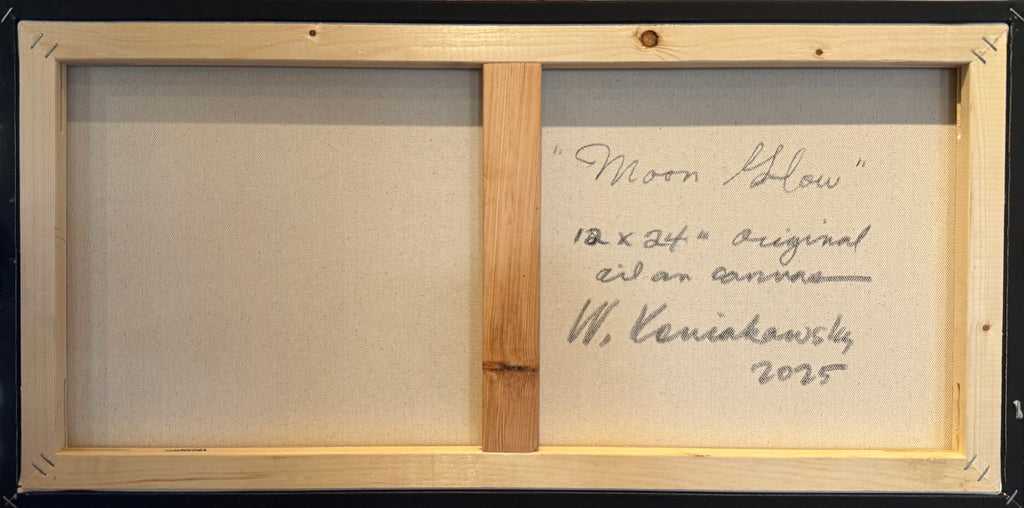 "Moon Glow"
12 x 24" original
oil on canvas
W. Koniakowsky
2025